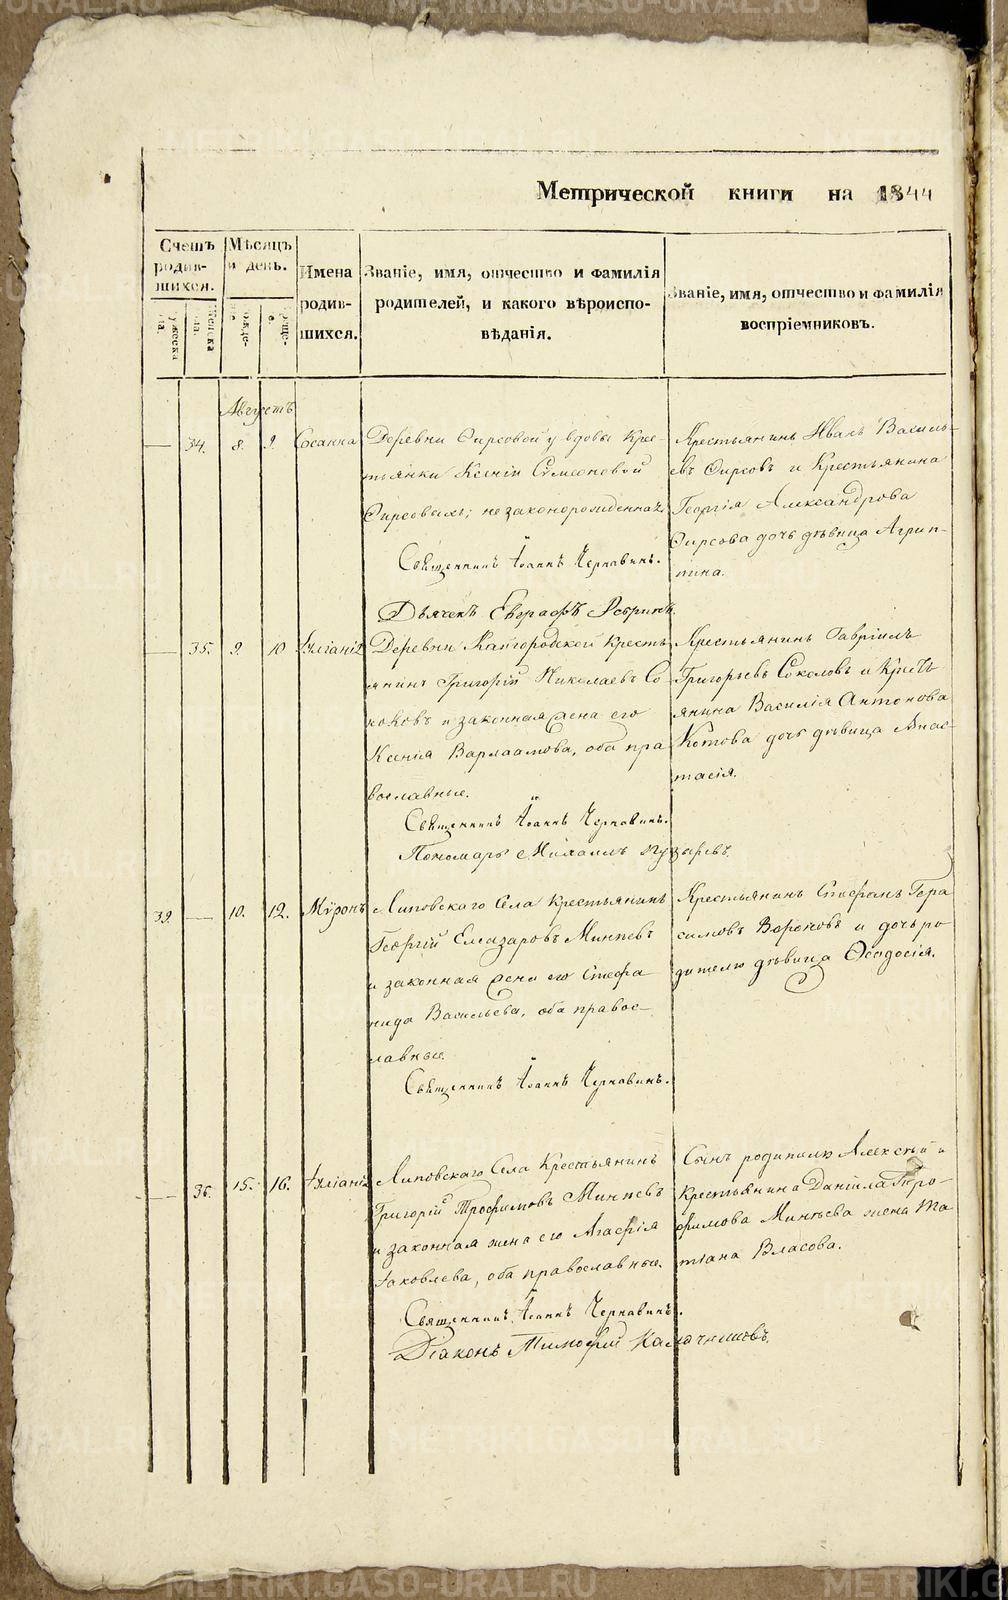 Метрической книги на 1844
Счетъ родив-шихся.
Мѣсяцъ и день.
Имена родив-шихся.
Званіе, имя, отчество и фамилія
родителей, и какого вѣроиспо-
вѣданія.
Званіе, имя, отчество и фамилія
воспріемниковъ.
Августъ
34. 8. 9. Сосанна
Деревни Фирсовой у вдовы Крес-
тьянки Ксеніи Симеоновой
Фирсовыхъ; незаконорожденная.
Священникъ Іоаннъ Чернавинъ.
Дьячекъ Евграфъ
Крестьянинъ Иванъ Василь-
евъ Фирсовъ и Крестьянина
Георгія Александрова
Фирсова дочь дѣвица Агрип-
пина.
35. 9. 10 Іуліанія
Деревни Кайгородской Кресть
янинъ Григорій Николаевъ Со
коловъ и законная жена его
Ксенія Варлаамова, оба пра
вославные.
Священникъ Іоаннъ Чернавинъ.
Пономарь Михаилъ
Крестьянинъ Гавріилъ
Григорьевъ Соколовъ и Кресть
янина Василія Антонова
Котова дочь дѣвица Анас-
тасія.
39. 10. 12. Мѵронъ
Липовскаго Села Крестьянинъ
Георгій Елеазаровъ Минѣевъ
и законная жена его Стефа
нида Васильева, оба правос-
лавные.
Священникъ Іоаннъ Чернавинъ.
Крестьянинъ Стефанъ Гера
симовъ Вороновъ и дочь ро
дителю дѣвица Ѳеодосія.
36. 15. 16. Іуліанія
Липовскаго Села Крестьянинъ
Григорій Трофимовъ Минѣевъ
и законная жена его Агафія
Іаковлева, оба православные.
Священникъ Іоаннъ Чернавинъ.
Діаконъ Тимофей
Сынъ родителю Алексѣй и
Крестьянина Даніила Тро-
фимова Минѣева жена Та
тіана Власова.
METRIKI.GASO-URAL.RU